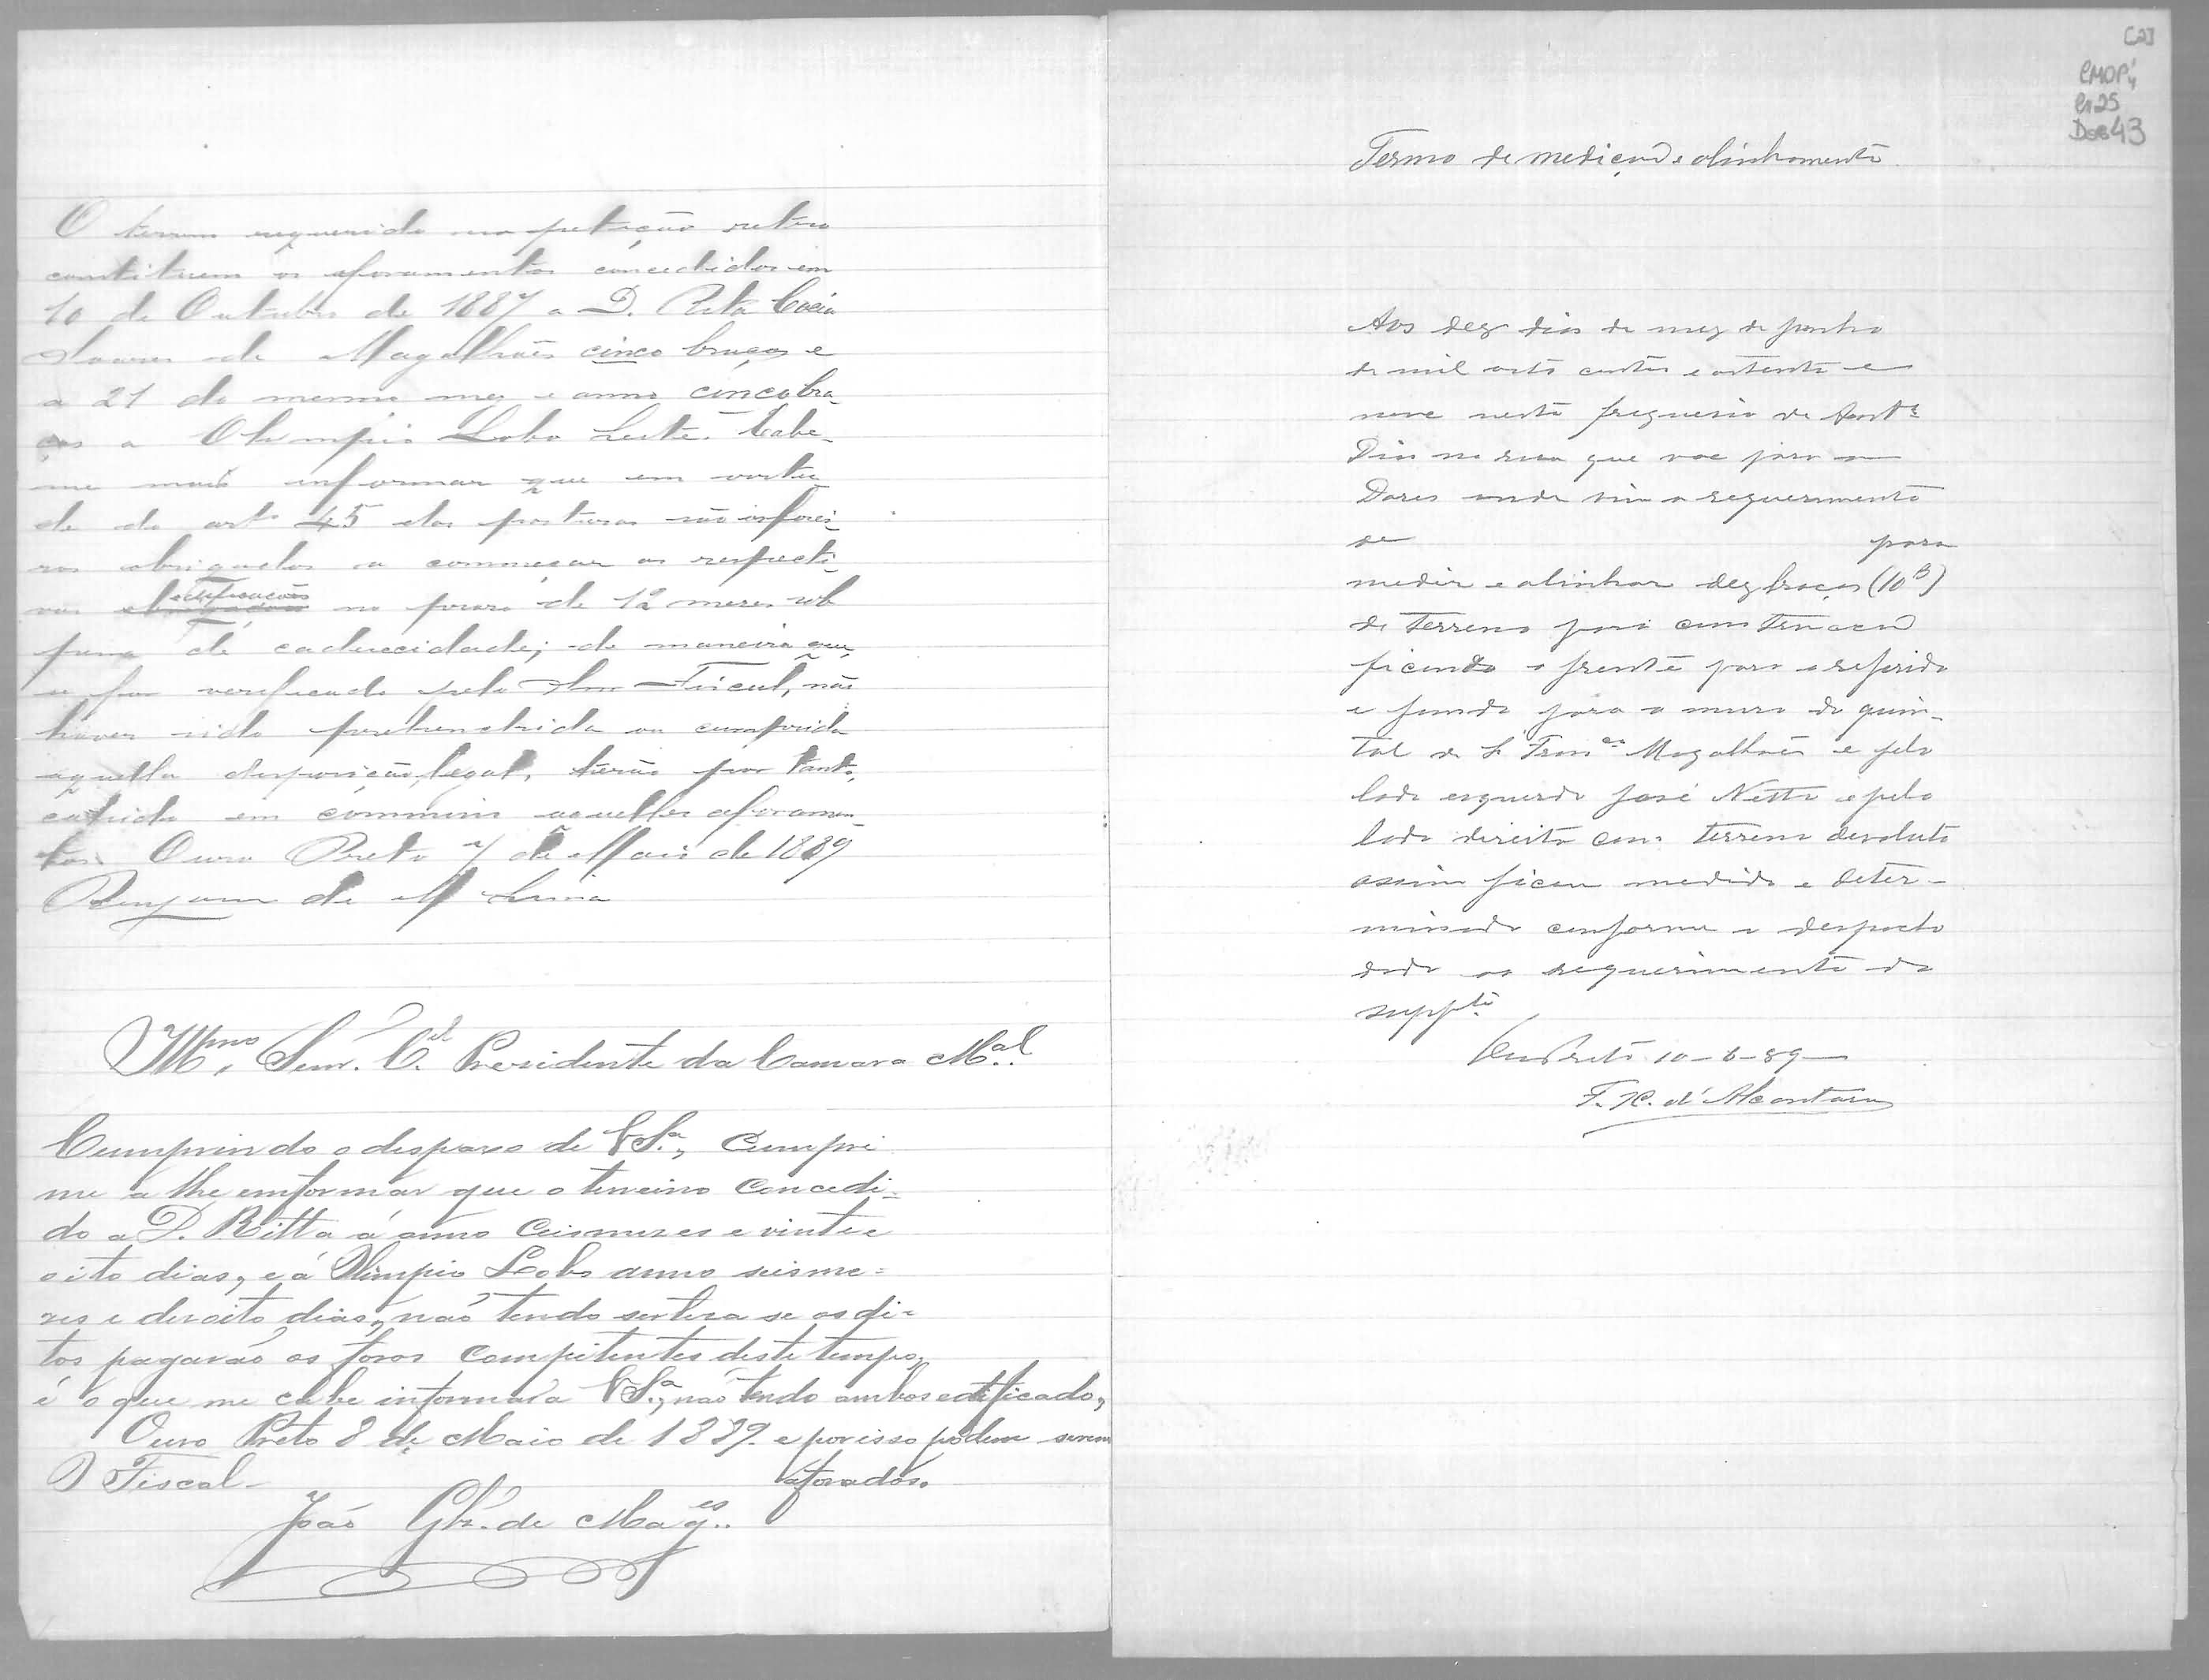 O terreno requerido na petição retro
constituem os aforamentos concedidos em
10 de Outubro de 1887 a D. Rita Cacia
Soares de Magalhães cinco braças e
a 21 do mesmo mez e anno cinco bra-
ças a Olimpio Lobo Leite. Cabe-
me mais informar que em virtu-
de do art. 45 das posturas são os forei-
ros obrigados a começar as respecti-
vas edificações no praso de 12 mezes sob
pena de caducidade; de maneira que,
se for verificado pelo Snr Fiscal, não
haver sido prehenchida ou cumprida
aquella disposição legal, terão por tanto,
cahido em commisso aquelles aforamen-
tos. Ouro Preto 7 de Maio de 1889
Benjamin de M Lima
Illmo. Senr. Cel. Presidente da Camara Mal.
Cumprindo o despaxo de VSa., Cumpri
me a lhe emformar que o terreino concedi-
do a D. Ritta á anno Ceis mezes e vinte e
oito dias, e á Olimpio Lobo anno seis me=
zes e dezoito dias, não tendo serteza se os di-
tos pagarão os foros Compitentes deste tempo,
é o que me cabe informar a VSa., não tendo ambos edificado,
Ouro Preto 8 de Maio de 1889. e por isso podem serem
O Fiscal- aforados.
João Glz. de Mages.
[2]
CMOP
Cx25
Doc43
Termo de medição e alinhamento
Aos dez dias do mez de junho
de mil oito centos e oitenta e
nove nesta freguesia de Anto
Dias na rua que vae para as
Dores onde vim a requerimento
de para
medir e alinhar dez braças (10B)
de terreno para construcção
ficando a frente para a referida
e fundo para o muro do quin-
tal de S. Franco Magalhães e pelo
lado esquerdo José Netto e pelo
lado direito com terreno devoluto
assim ficou medido e deter-
minado conforme o despacho
dado ao requerimento do
suppte.
Ouro Preto 10-6-89
F. X. d'Alcantara